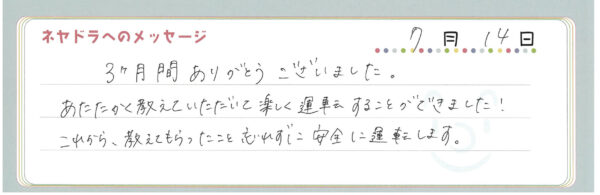 ネヤドラへのメッセージ
7月14日
3ヶ月間ありがとうございました。
あたたかく教えていただいて楽しく運転することができました!
これから、教えてもらったこと忘れずに安全に運転します。